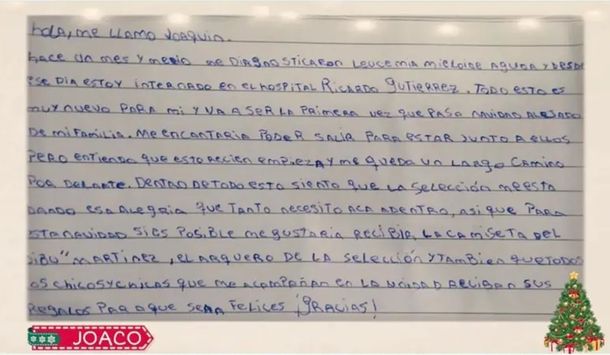 hola, me llamo Joaquin.
Hace un mes y medio me diagnosticaron leucemia mieloide aguda y desde
ese dia estoy internado en el hospital Ricardo Gutierrez. Todo esto es
muy nuevo para mi y va a ser la primera vez que paso navidad alejado
de mi familia. Me encantaria poder salir para estar junto a ellos
pero entiendo que esto recien empieza y me queda un largo camino
por delante. Dentro de todo esto siento que la selección me esta
dando esa alegria que tanto necesito aca adentro, asi que para
esta navidad si es posible me gustaria recibir la camiseta del
"Dibu" Martinez, el arquero de la selección y tambien que todos
los chicos y chicas que me acompañan en la unidad reciban sus
regalos para que sean felices ¡gracias!
JOACO